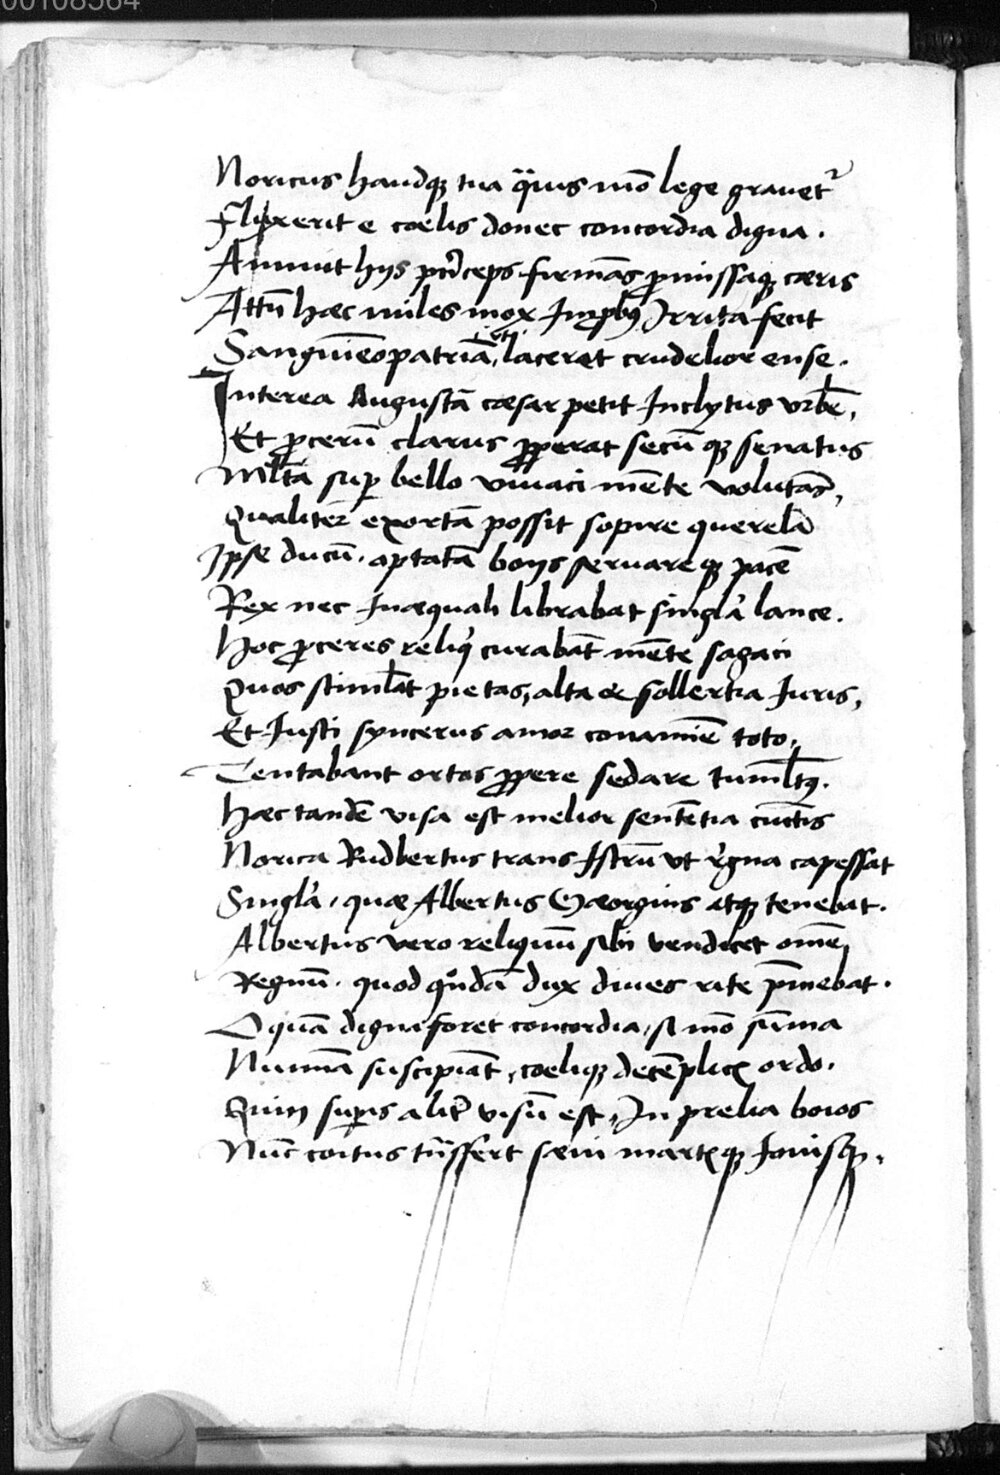 00108564
Noricus haudq; tua q̈uis mo᷃ lege grauet᷑
Fluxerit e coelis donec concordia digna.
Annuit hijs pri᷃ceps firma᷃s promissaq; cæris
Attn᷃ hæc miles mox Imp̱bus Irrita fecit
Sanguineo patria᷃, laceret crudelior ense.
Interea Augusta᷃ cæsar petit Inclytus vrbe᷃,
Et proceru᷃ clarus properat secu᷃ q; senatus
Ml̃ta sup̱ bello viuaci me᷃te voluta᷃s,
Qualiter exorta᷃ possit sopire querela᷃
Ipse ducu᷃. optata᷃ boijs seruare q; pace᷃
Rex nec Inæquali librabat singl̓a lance.
Hoc proceres reliq̓ curaba᷃t me᷃te sagaci
Quos stiml̃at pietas, alta & sollertia Iuris,
Et Iusti syncerus amor conamine᷃ toto,
Tentabant ortos propere sedare tuml̃tus.
Hæc tande᷃ visa est melior sente᷃tia cu᷃ctis
Norica Rudbertus trans Istru᷃ vt r̓gna capessat
Singl̓a, quæ Albertus Gæorgius atq; tenebat.
Albertus vero reliquu᷃ sibi vendicet om᷃e,
Regnu᷃. quod quo᷃da᷃ dux diues rite p᷃mebat.
O qua᷃ digna foret concordia, si mo᷃ su᷃ma
Numina᷃ suscipia᷃t, coeliq; dece᷃plicis ordo.
Quin sup̱is alit̓ visu᷃ est, In prelia boios
Nu᷃c coitus tra᷃sfert sæui martisq; Iouisq;.